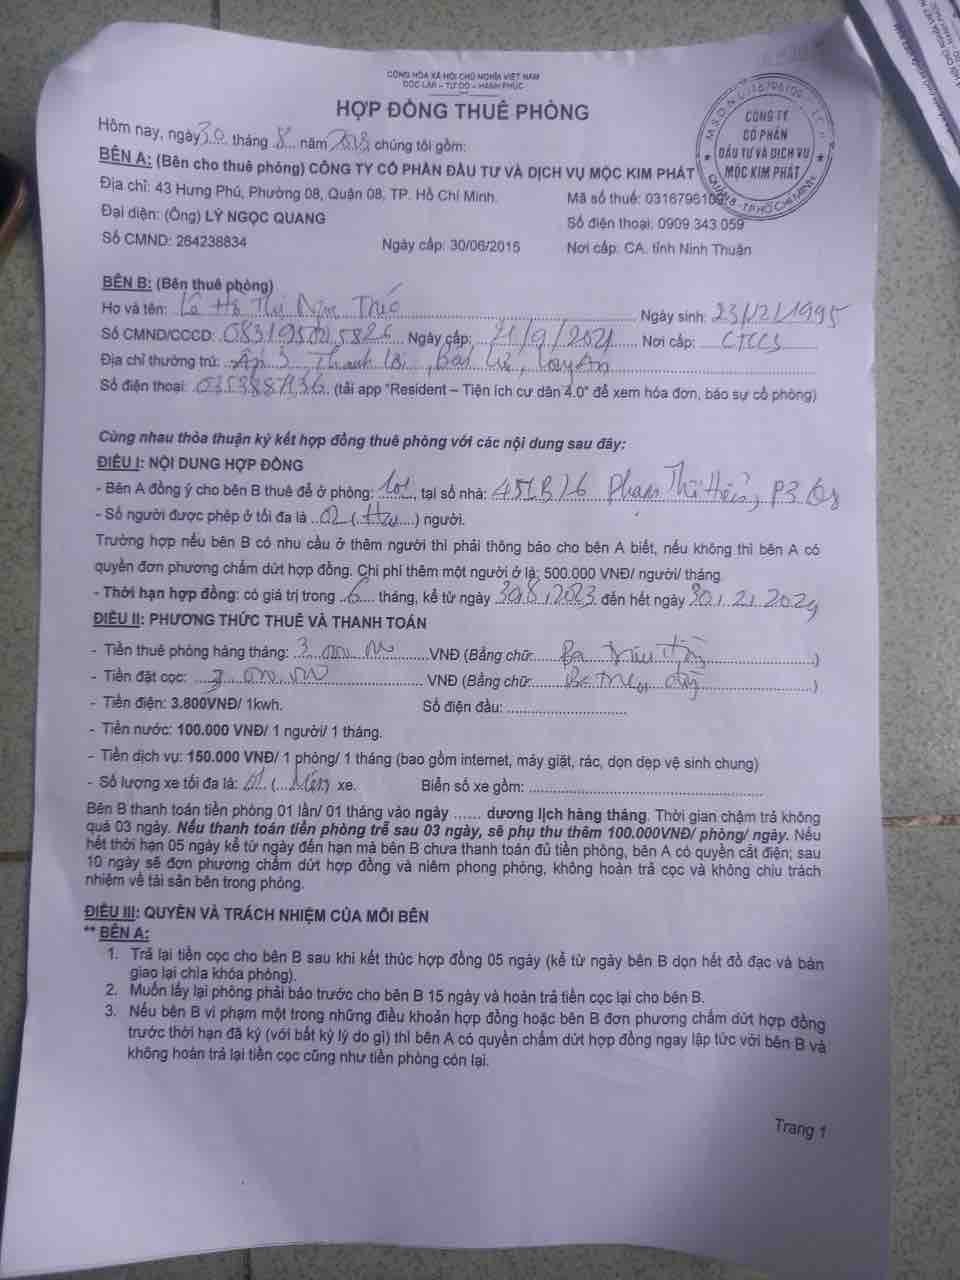 CỘNG HÒA XÃ HỘI CHỦ NGHĨA VIỆT NAM
ĐỘC LẬP – TỰ DO – HẠNH PHÚC
HỢP ĐỒNG THUÊ PHÒNG
Hôm nay, ngày 30 tháng 8 năm chúng tôi gồm:
BÊN A: (Bên cho thuê phòng) CÔNG TY CỔ PHẦN ĐẦU TƯ VÀ DỊCH VỤ MỘC KIM PHÁT
Địa chỉ: 43 Hưng Phú, Phường 08, Quận 08, TP. Hồ Chí Minh. Mã số thuế: 0316796109
Đại diện: (Ông) LÝ NGỌC QUANG Số điện thoại: 0909 343 059
Số CMND: 264238834 Ngày cấp: 30/06/2015 Nơi cấp: CA. tỉnh Ninh Thuận
CÔNG TY
CỔ PHẦN
ĐẦU TƯ VÀ DỊCH VỤ
MỘC KIM PHÁT
QUẬN 8 - TP HỒ CHÍ MINH
BÊN B: (Bên thuê phòng)
Họ và tên: Ngày sinh: 23/12/1995
Số CMND/CCCD: 083195015826 Ngày cấp: 21/9/2021 Nơi cấp:
Địa chỉ thường trú: Ấp 3, Thạnh Lợi,
Số điện thoại: (tải app "Resident – Tiện ích cư dân 4.0" để xem hóa đơn, báo sự cố phòng)
Cùng nhau thỏa thuận ký kết hợp đồng thuê phòng với các nội dung sau đây:
ĐIỀU I: NỘI DUNG HỢP ĐỒNG
- Bên A đồng ý cho bên B thuê để ở phòng: tại số nhà: Phạm Thế Hiển, P3, Q8
- Số người được phép ở tối đa là 02 (Hai) người.
Trường hợp nếu bên B có nhu cầu ở thêm người thì phải thông báo cho bên A biết, nếu không thì bên A có
quyền đơn phương chấm dứt hợp đồng. Chi phí thêm một người ở là: 500.000 VNĐ/ người/ tháng.
- Thời hạn hợp đồng: có giá trị trong 6 tháng, kể từ ngày 30/8/2023 đến hết ngày 30/2/2024
ĐIỀU II: PHƯƠNG THỨC THUÊ VÀ THANH TOÁN
- Tiền thuê phòng hàng tháng: 3.000.000 VNĐ (Bằng chữ: Ba triệu đồng)
- Tiền đặt cọc: 3.000.000 VNĐ (Bằng chữ: Ba triệu đồng)
- Tiền điện: 3.800VNĐ/ 1kwh. Số điện đầu:
- Tiền nước: 100.000 VNĐ/ 1 người/ 1 tháng.
- Tiền dịch vụ: 150.000 VNĐ/ 1 phòng/ 1 tháng (bao gồm internet, máy giặt, rác, dọn dẹp vệ sinh chung)
- Số lượng xe tối đa là: xe. Biển số xe gồm:
Bên B thanh toán tiền phòng 01 lần/ 01 tháng vào ngày ...... dương lịch hàng tháng. Thời gian chậm trả không
quá 03 ngày. Nếu thanh toán tiền phòng trễ sau 03 ngày, sẽ phụ thu thêm 100.000VNĐ/ phòng/ ngày. Nếu
hết thời hạn 05 ngày kể từ ngày đến hạn mà bên B chưa thanh toán đủ tiền phòng, bên A có quyền cắt điện; sau
10 ngày sẽ đơn phương chấm dứt hợp đồng và niêm phong phòng, không hoàn trả cọc và không chịu trách
nhiệm về tài sản bên trong phòng.
ĐIỀU III: QUYỀN VÀ TRÁCH NHIỆM CỦA MỖI BÊN
** BÊN A:
1. Trả lại tiền cọc cho bên B sau khi kết thúc hợp đồng 05 ngày (kể từ ngày bên B dọn hết đồ đạc và bàn
giao lại chìa khóa phòng).
2. Muốn lấy lại phòng phải báo trước cho bên B 15 ngày và hoàn trả tiền cọc lại cho bên B.
3. Nếu bên B vi phạm một trong những điều khoản hợp đồng hoặc bên B đơn phương chấm dứt hợp đồng
trước thời hạn đã ký (với bất kỳ lý do gì) thì bên A có quyền chấm dứt hợp đồng ngay lập tức với bên B và
không hoàn trả lại tiền cọc cũng như tiền phòng còn lại.
Trang 1